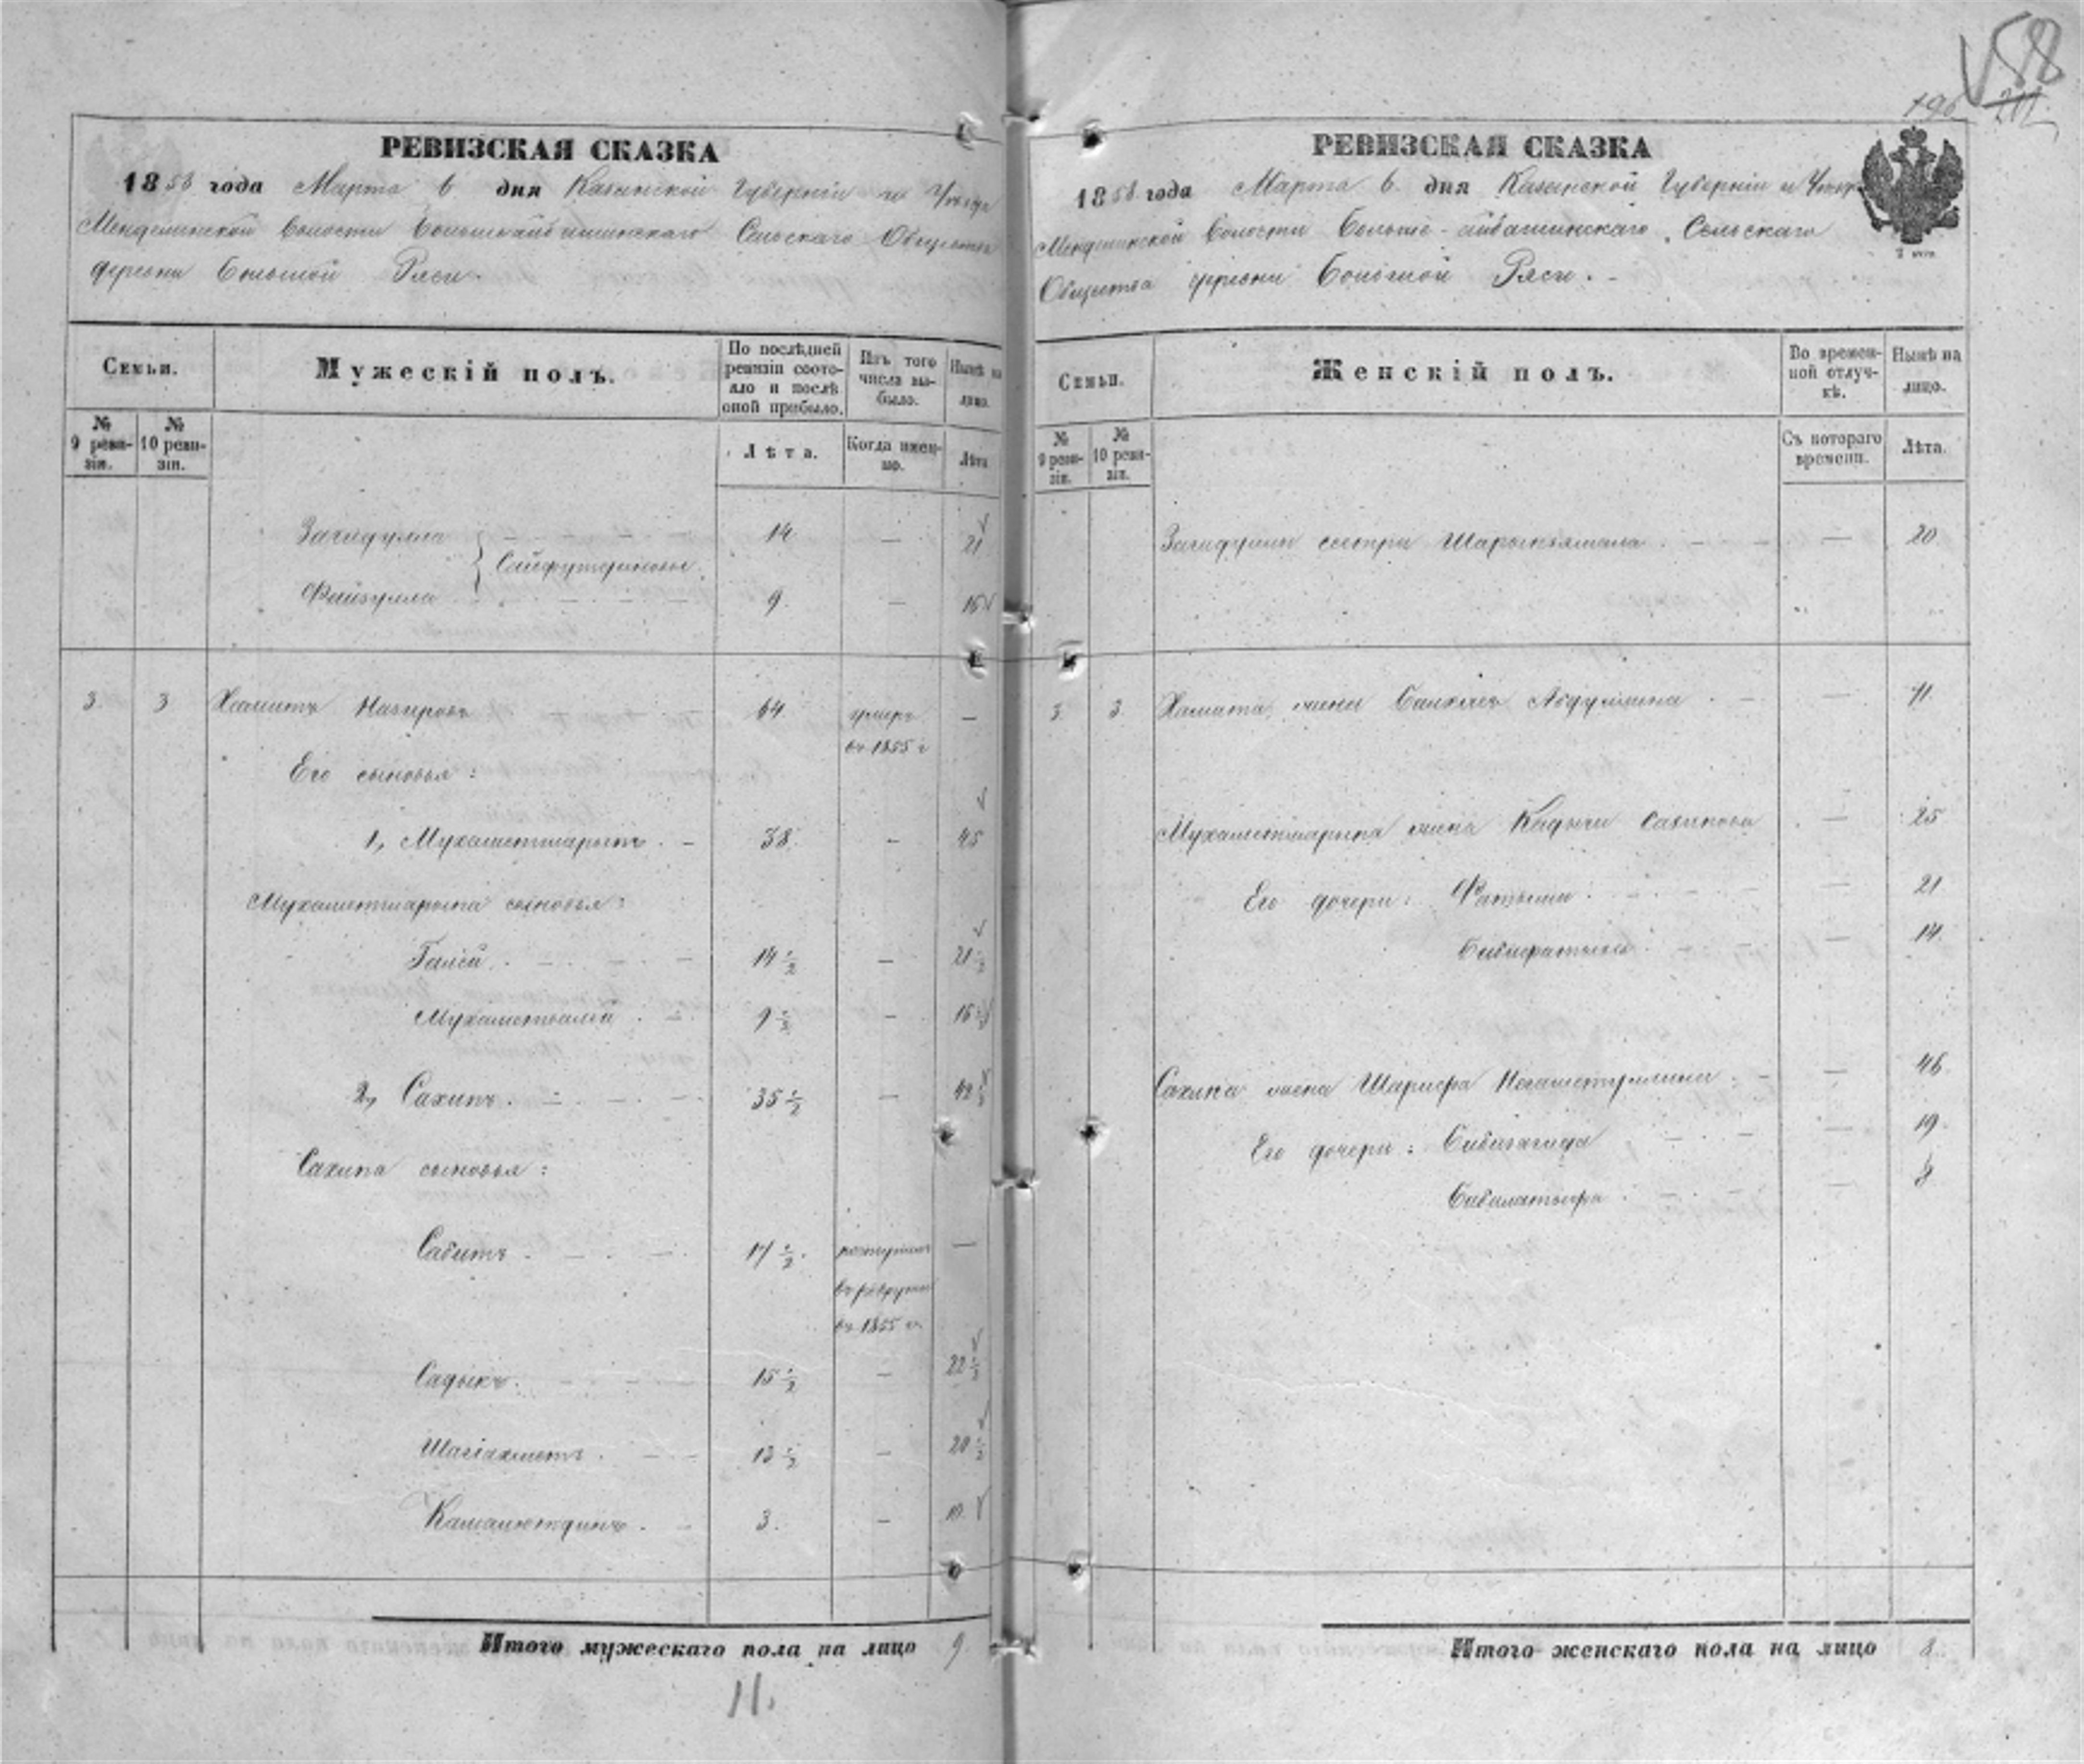 58
196
РЕВИЗСКАЯ СКАЗКА
1858 года Марта 6 дня Казанской Губернии и Уезда
Менделинской волости Больше-айбашинскаго Сельскаго Общества
деревни Большой Ряси.
Семьи.
Мужескій полъ.
По послѣдней ревизіи состояло и послѣ оной прибыло.
Изъ того числа выбыло.
Нынѣ на лицо.
№ 9 ревизіи.
№ 10 ревизіи.
Лѣта.
Когда именно.
Лѣта
Загидулла 14 — 21
Сайфутдиновы
Файзулла 9. — 16
3. 3 Хамитъ Назировъ 64 умеръ —
въ 1855 г
Его сыновья:
1, Мухаметшарипъ. 38. — 45
Мухаметшарипа сыновья:
Галей. 14 1/2 — 21 1/2
Мухаметвалей 9 1/2 — 16 1/2
2, Сахипъ. 35 1/2 — 42 1/2
Сахипа сыновья:
Сабитъ 17 1/2. —
въ рекруты
въ 1855 г.
Садыкъ. 15 1/2 — 22 1/2
Шагіахметъ. 13 1/2 — 20 1/2
Камалютдинъ. 3. — 10
Итого мужескаго пола на лицо 9.
11.
РЕВИЗСКАЯ СКАЗКА
1858 года Марта 6 дня Казанской Губерніи и Уезда
Менделинской волости Больше-айбашинскаго Сельскаго
Общества деревни Большой Ряси.
Семьи.
Женскій полъ.
Во временной отлучкѣ.
Нынѣ на лицо.
№ 9 ревизіи.
№ 10 ревизіи.
Съ котораго времени.
Лѣта.
Загидуллы сестра — 20.
3. 3. Хамита жена Абдуллина — 71.
Мухаметшарипа жена — 25
Его дочери: — 21
— 14.
Сахипа жена Шарифа — 46.
Его дочери: Бибизагида — 19.
Бибилатыфа — 8
Итого женскаго пола на лицо 8.